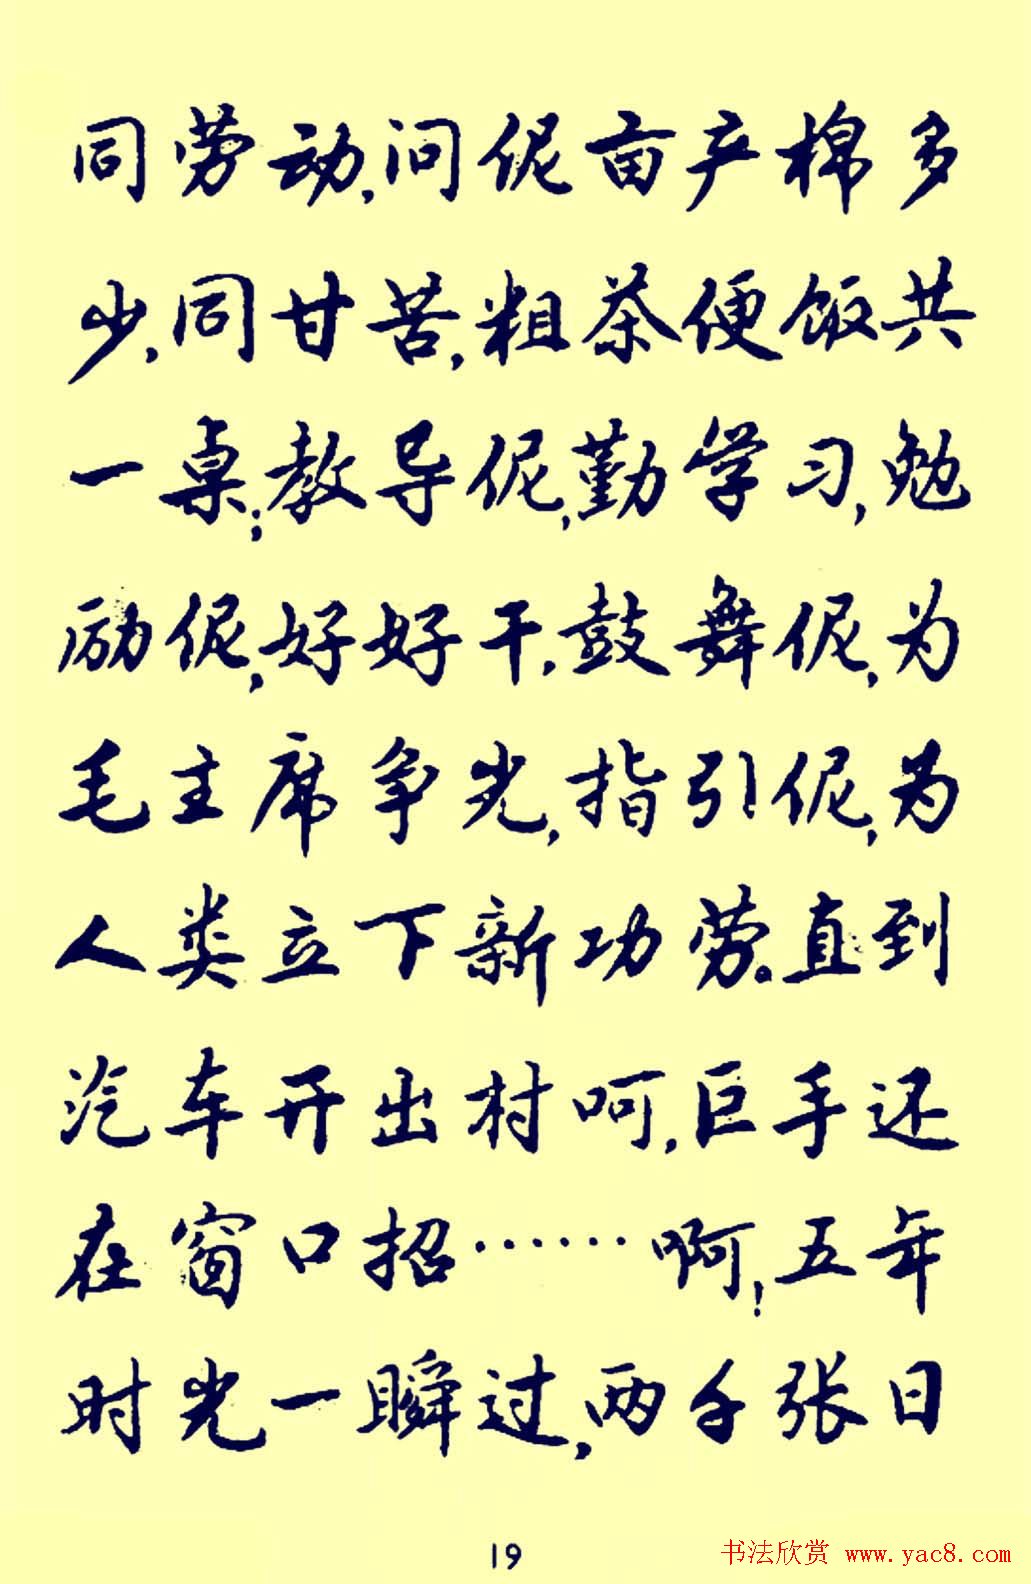 同劳动,问伲亩产棉多
少,同甘苦,粗茶便饭共
一桌;教导伲,勤学习,勉
励伲,好好干.鼓舞伲,为
毛主席争光,指引伲,为
人类立下新功劳。直到
汽车开出村呵,巨手还
在窗口招……啊!五年
时光一瞬过,两千张日
19
书法欣赏 www.yac8.com